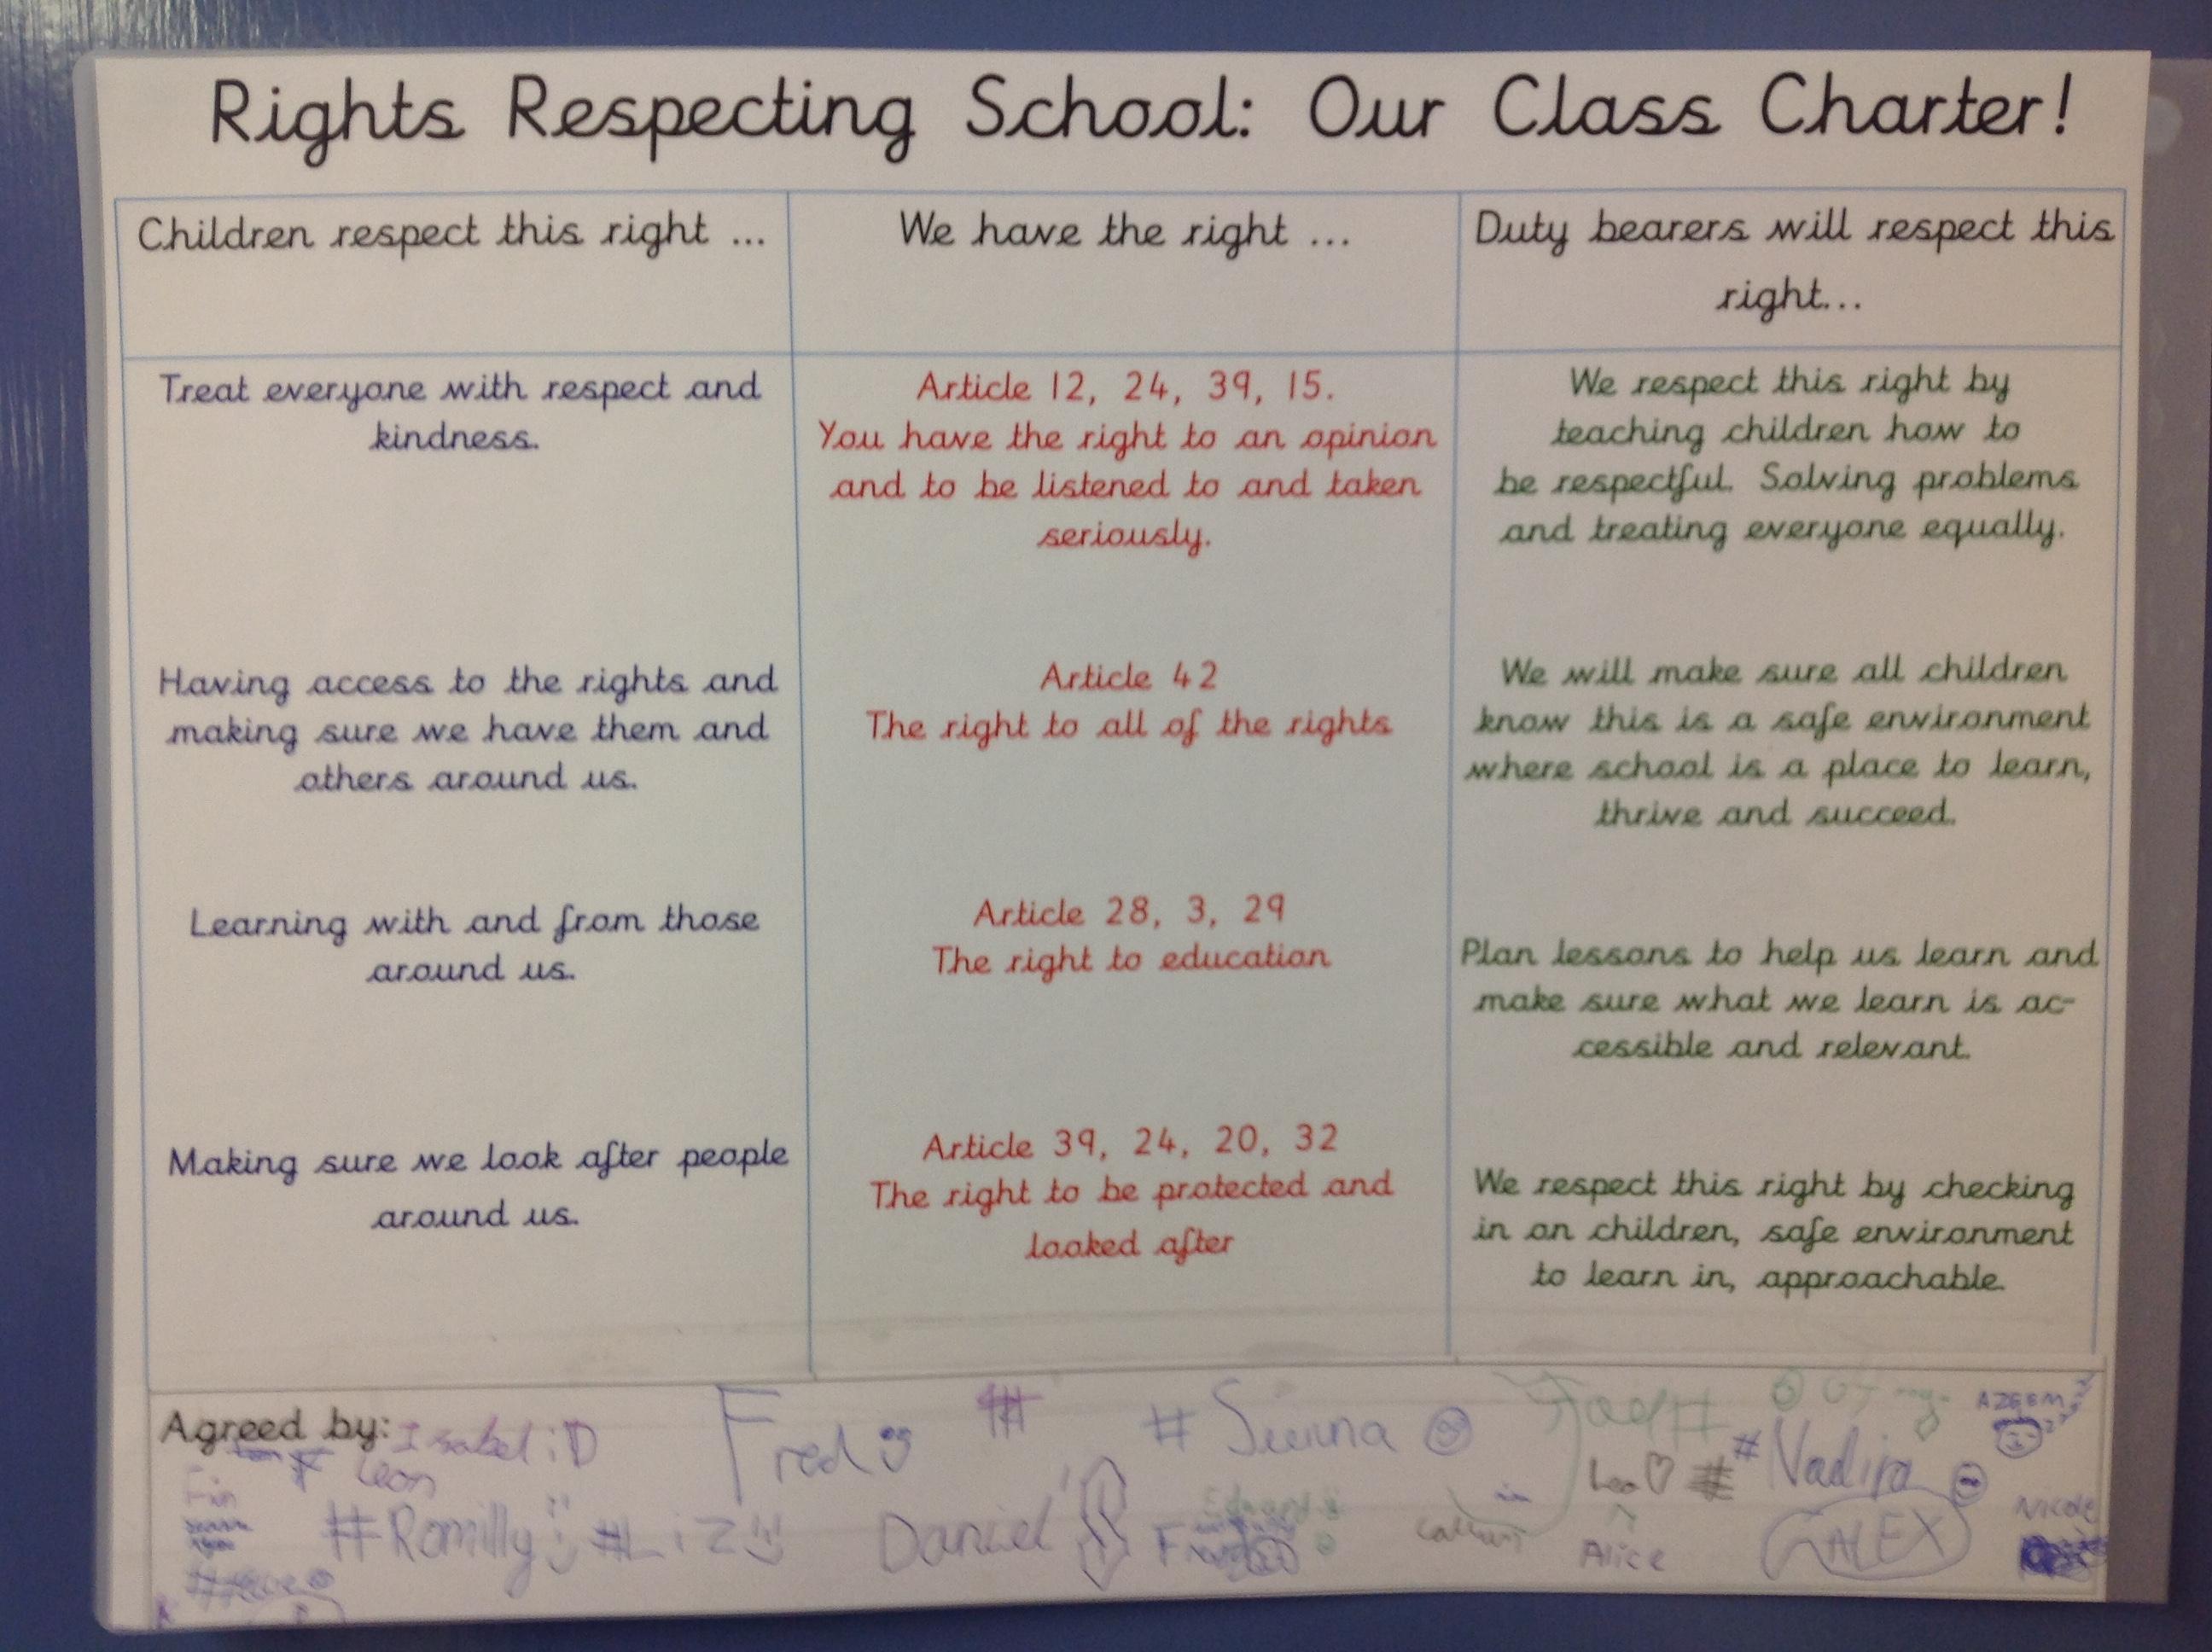 Rights Respecting School: Our Class Charter!
Children respect this right ...
We have the right ...
Duty bearers will respect this
right...
Treat everyone with respect and
kindness.
Article 12, 24, 39, 15.
You have the right to an opinion
and to be listened to and taken
seriously.
We respect this right by
teaching children how to
be respectful. Solving problems
and treating everyone equally.
Having access to the rights and
making sure we have them and
others around us.
Article 42
The right to all of the rights
We will make sure all children
know this is a safe environment
where school is a place to learn,
thrive and succeed.
Learning with and from those
around us.
Article 28, 3, 29
The right to education
Plan lessons to help us learn and
make sure what we learn is ac-
cessible and relevant.
Making sure we look after people
around us.
Article 39, 24, 20, 32
The right to be protected and
looked after
We respect this right by checking
in on children, safe environment
to learn in, approachable.
Agreed by:
Isabel :D
Fred
#
# Sienna
AZEEM
Leon
Leo
#
# Nadira
Fin
#Romilly
#Liz
Daniel
Edward
Callum
Alice
ALEX
Nicole